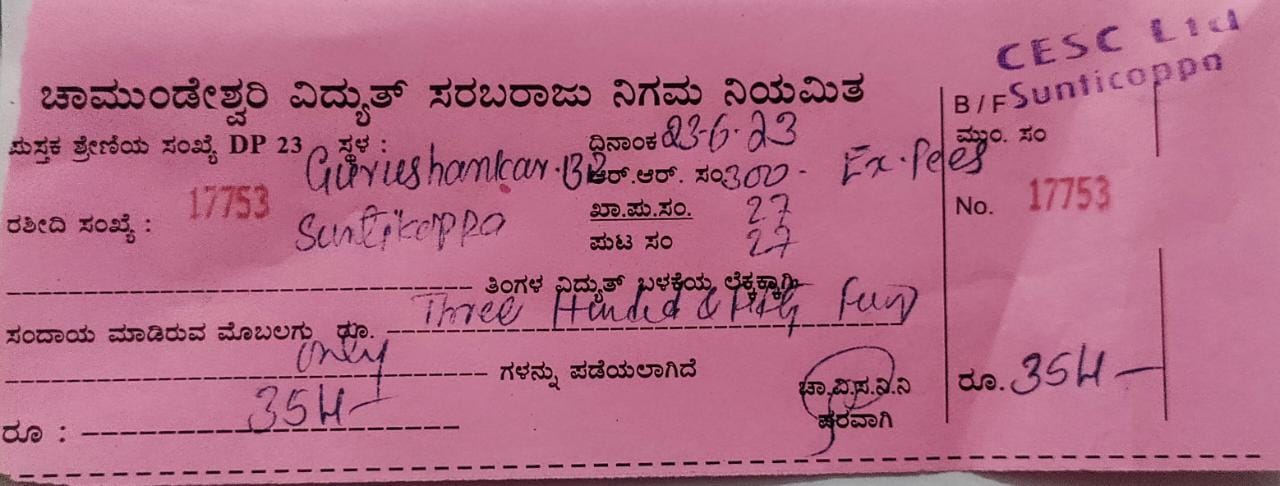 CESC Ltd
Sunticoppa
ಚಾಮುಂಡೇಶ್ವರಿ ವಿದ್ಯುತ್ ಸರಬರಾಜು ನಿಗಮ ನಿಯಮಿತ
B / F
ಪುಸ್ತಕ ಶ್ರೇಣಿಯ ಸಂಖ್ಯೆ DP 23 ಸ್ಥಳ : ದಿನಾಂಕ 23-6-23
ಮುಂ. ಸಂ
Gurushankar. ಆರ್.ಆರ್. ಸಂ 300 - Ex.
ರಶೀದಿ ಸಂಖ್ಯೆ : 17753 Suntikoppa ಖಾ.ಪು.ಸಂ. 27
No. 17753
ಪುಟ ಸಂ 27
ತಿಂಗಳ ವಿದ್ಯುತ್ ಬಳಕೆಯ ಲೆಕ್ಕಕ್ಕಾಗಿ
ಸಂದಾಯ ಮಾಡಿರುವ ಮೊಬಲಗು ರೂ. Three &
only ಗಳನ್ನು ಪಡೆಯಲಾಗಿದೆ
ಚಾ.ವಿ.ಸ.ನಿ.ನಿ
ಪರವಾಗಿ
ರೂ. 354/-
ರೂ : 354/-